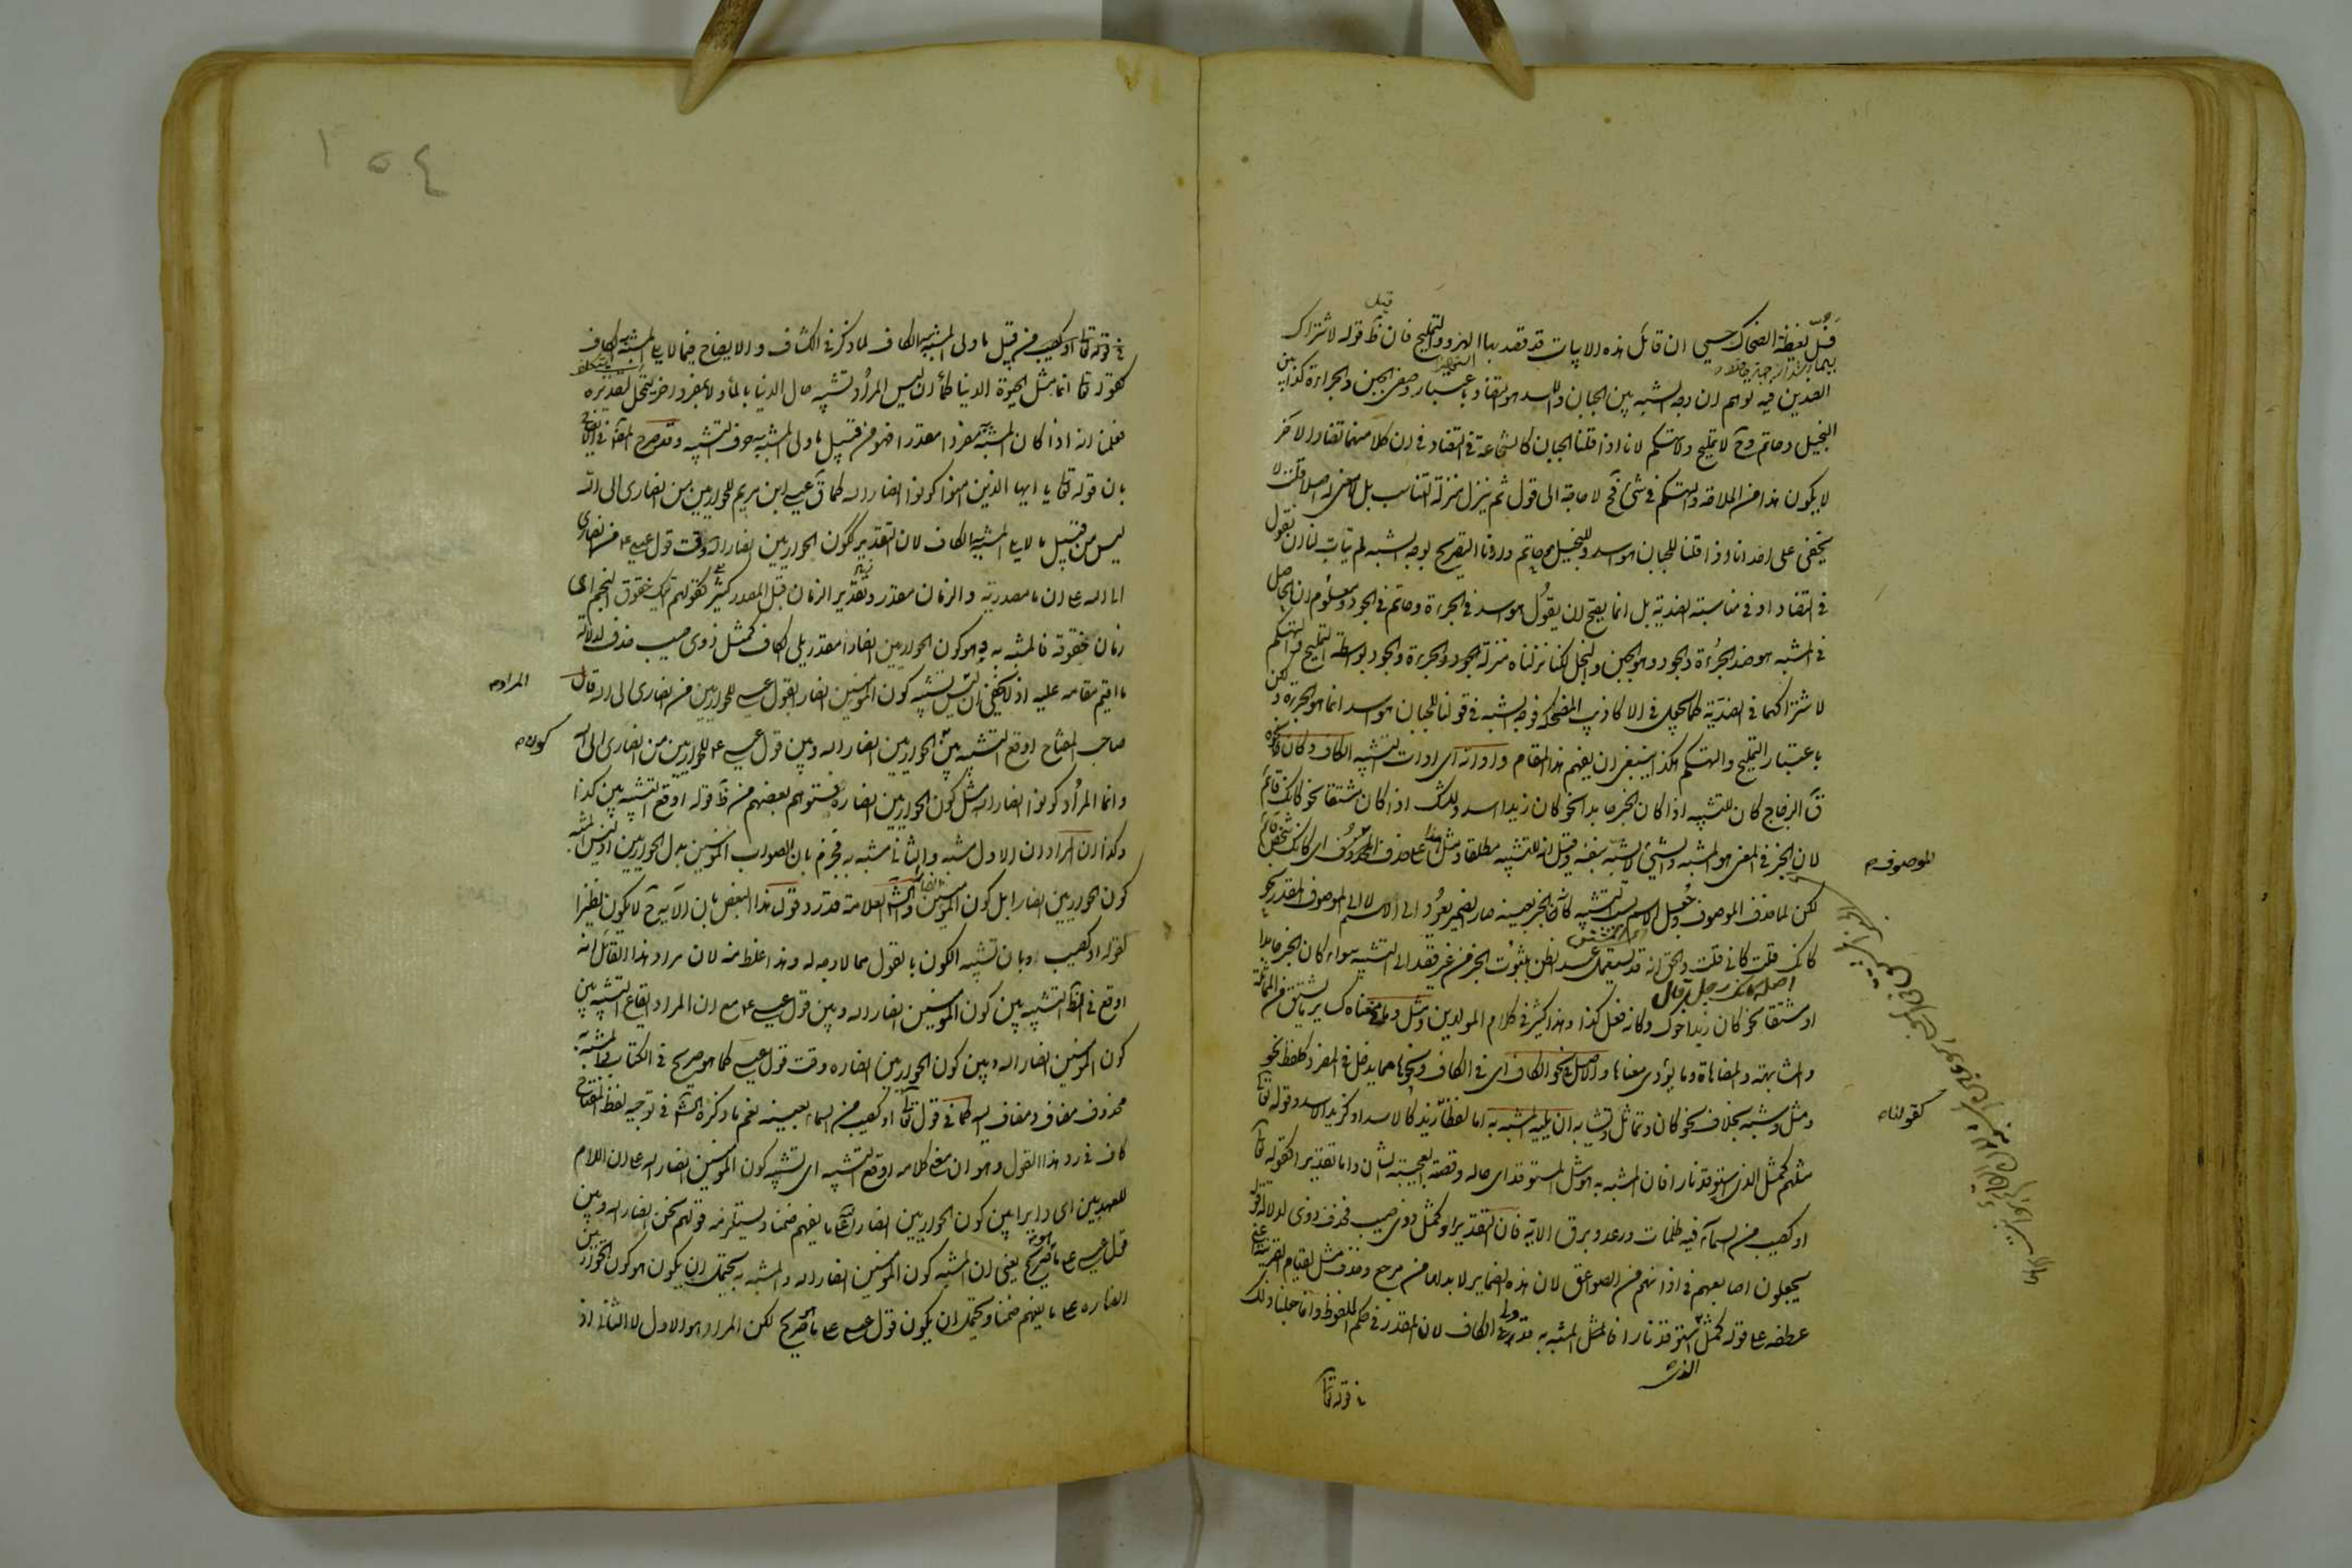 لفظة الضحاك حسبي ان قائل هذه الابيات قد قصد بها الهزؤ والتمليح فان ظ قوله لاشتراك
الضدين فيه يوهم ان وجه الشبه بين الجبان والاسد هو التضاد باعتبار وصفي الجبن والجراءة وكذا بين
البخيل وحاتم وح لا تمليح ولا تهكم لانا اذا قلنا الجبان كالشجاع في التضاد في ان كلا منهما تضاد الاخر
لا يكون هذا من الملاحة والتهكم في شئ فح لا حاجة الى قوله ثم ينزل منزلة التناسب بل لا معنى له اصلا قلت لا
يخفى على احد انا اذا قلنا للجبان هو اسد وللبخيل هو حاتم واردنا التصريح بوجه الشبه لم يتأت لنا ان نقول
في التضاد او في مناسبة الضدية بل انما يصح ان نقول هو اسد في الجراءة وحاتم في الجود ومعلوم ان الحاصل
في المشبه هو ضد الجراءة والجود وهو الجبن والبخل لكنا نزلناه منزلة الجود والجراءة بواسطة التمليح والتهكم
لاشتراكهما في الضدية كما يجعل في الاكاذيب المضحكة فوجه الشبه في قولنا للجبان هو اسد انما هو الجراءة لكن
باعتبار التمليح والتهكم هكذا ينبغي ان يفهم هذا المقام واداته اى ادات التشبيه الكاف وكان
ق الزجاج كان للتشبيه اذا كان الخبر جامدا نحو كان زيدا اسد وللشك اذا كان مشتقا نحو كانك قائم
لان الخبر في المعنى هو المشبه والشئ لا يشبه بنفسه وقيل انه للتشبيه مطلقا ومثل هذا على حذف الموصوف اى كانك شخص قائم
لكن لما حذف الموصوف وجعل الاسم بسبب التشبيه كانه الخبر بعينه صار الضمير يعود الى الاسم لا الى الموصوف المقدر نحو
كانك قلت وكانى قلت والحق انه قد يستعمل عند الظن بثبوت الخبر من غير قصد الى التشبيه سواء كان الخبر جامدا
اصله كانك رجل قال
او مشتقا نحو كان زيدا اخوك وكانه فعل كذا وهذا كثير في كلام المولدين ومثل وما في معناه كسائر ما يشتق من المماثلة
والمشابهة والمضاهاة وما يؤدى معناها والاصل في نحو الكاف اى في الكاف ونحوها مما يدخل على المفرد كلفظ نحو
ومثل وشبه بخلاف نحو كان وتماثل وتشابه ان يليه المشبه به اما لفظا زيد كالاسد او كزيد الاسد وقوله تعا
مثلهم كمثل الذى استوقد نارا فان المشبه به هو مثل المستوقد اى حاله وقصته العجيبة الشان واما تقديرا كقوله تعا
او كصيب من السماء فيه ظلمات ورعد وبرق الآية فان التقدير او كمثل ذوى صيب فحذف ذوى لدلالة قوله
يجعلون اصابعهم في اذانهم من الصواعق لان هذه الضماير لا بد لها من مرجع وحذف مثل لقيام القرينة اعنى
عطفه على قوله كمثل استوقد نارا فالمثل المشبه به قد ولى الكاف لان المقدر في حكم الملفوظ وانما جعلنا ذلك
الذى
في قوله تعا
الموصوف
كقولنا
في قوله تعا او كصيب من قبيل ما ولى المشبه به الكاف لما ذكر في الكشاف والايضاح فيما لا يلي المشبه به الكاف
كقوله تعا انما مثل الحيوة الدنيا كماء ان ليس المراد تشبيه حال الدنيا بالماء ولا بمفرد اخر يتمحل لتقديره
فعلمنا انه اذا كان المشبه به مفردا مقدرا فهو من قبيل ما ولى المشبه به حرف التشبيه وقد صرح المص في الايضاح
بان قوله تعا يا ايها الذين امنوا كونوا انصار الله كما ق عيسى ابن مريم للحواريين من انصارى الى الله
ليس من قبيل ما لا يلي المشبه به الكاف لان التقدير ككون الحواريين انصار الله وقت قول عيسى ع من انصارى
الى الله على ان ما مصدرية والزمان مقدر وتقدير الزمان قبل المصدر كثير كقولهم آتيك خفوق النجم اى
زمان خفوقه فالمشبه به وهو كون الحواريين انصارا مقدر يلي الكاف كمثل ذوى صيب حذف لدلالة
ما اقيم مقامه عليه اذ لا يخفى ان ليس تشبيه كون المؤمنين انصار بقول عيسى للحواريين من انصارى الى الله قال
صاحب المفتاح اوقع التشبيه بين الحواريين انصار الله وبين قول عيسى ع للحواريين من انصارى الى الله
وانما المراد كونوا انصار الله مثل كون الحواريين انصاره فتوهم بعضهم من ظ قوله اوقع التشبيه بين كذا
وكذا ان المراد ان الاول مشبه والثانى مشبه به فجزم بان الصواب المؤمنين بدل الحواريين اذ ليس المشبه
كون الحواريين انصارا بل كون المؤمنين والش العلامة قد رد قول هذا البعض بان الآية ح لا يكون نظيرا
لقوله او كصيب وبان تشبيه الكون بالقول مما لا وجه له وهذا غلط منه لان مراد هذا القائل انه
اوقع في الظ التشبيه بين كون المؤمنين انصار الله وبين قول عيسى ع مع ان المراد ايقاع التشبيه بين
كون المؤمنين انصار الله وبين كون الحواريين انصاره وقت قول عيسى كما هو صريح في الكتاب فالمشبه به
محذوف مضاف ومضاف اليه كما في قوله تعا او كصيب من السماء بعينه نعم ما ذكره الش في توجيه لفظ المفتاح
كاف في رد هذا القول وهو ان معنى كلامه اوقع التشبيه اى تشبيه كون المؤمنين انصار الله على ان اللام
للعهد بين اى دايرا بين كون الحواريين انصار الله على ما يفهم ضمنا ويستلزمه قولهم نحن انصار الله وبين
قول عيسى على ما هو صريح يعنى ان المشبه كون المؤمنين انصار الله والمشبه به يحتمل ان يكون هو كون الحواريين
انصاره على ما يفهم ضمنا ويحتمل ان يكون قول عيسى على ما هو صريح لكن المراد هو الاول لا الثانى اذ
المراد
كون
١٥٤